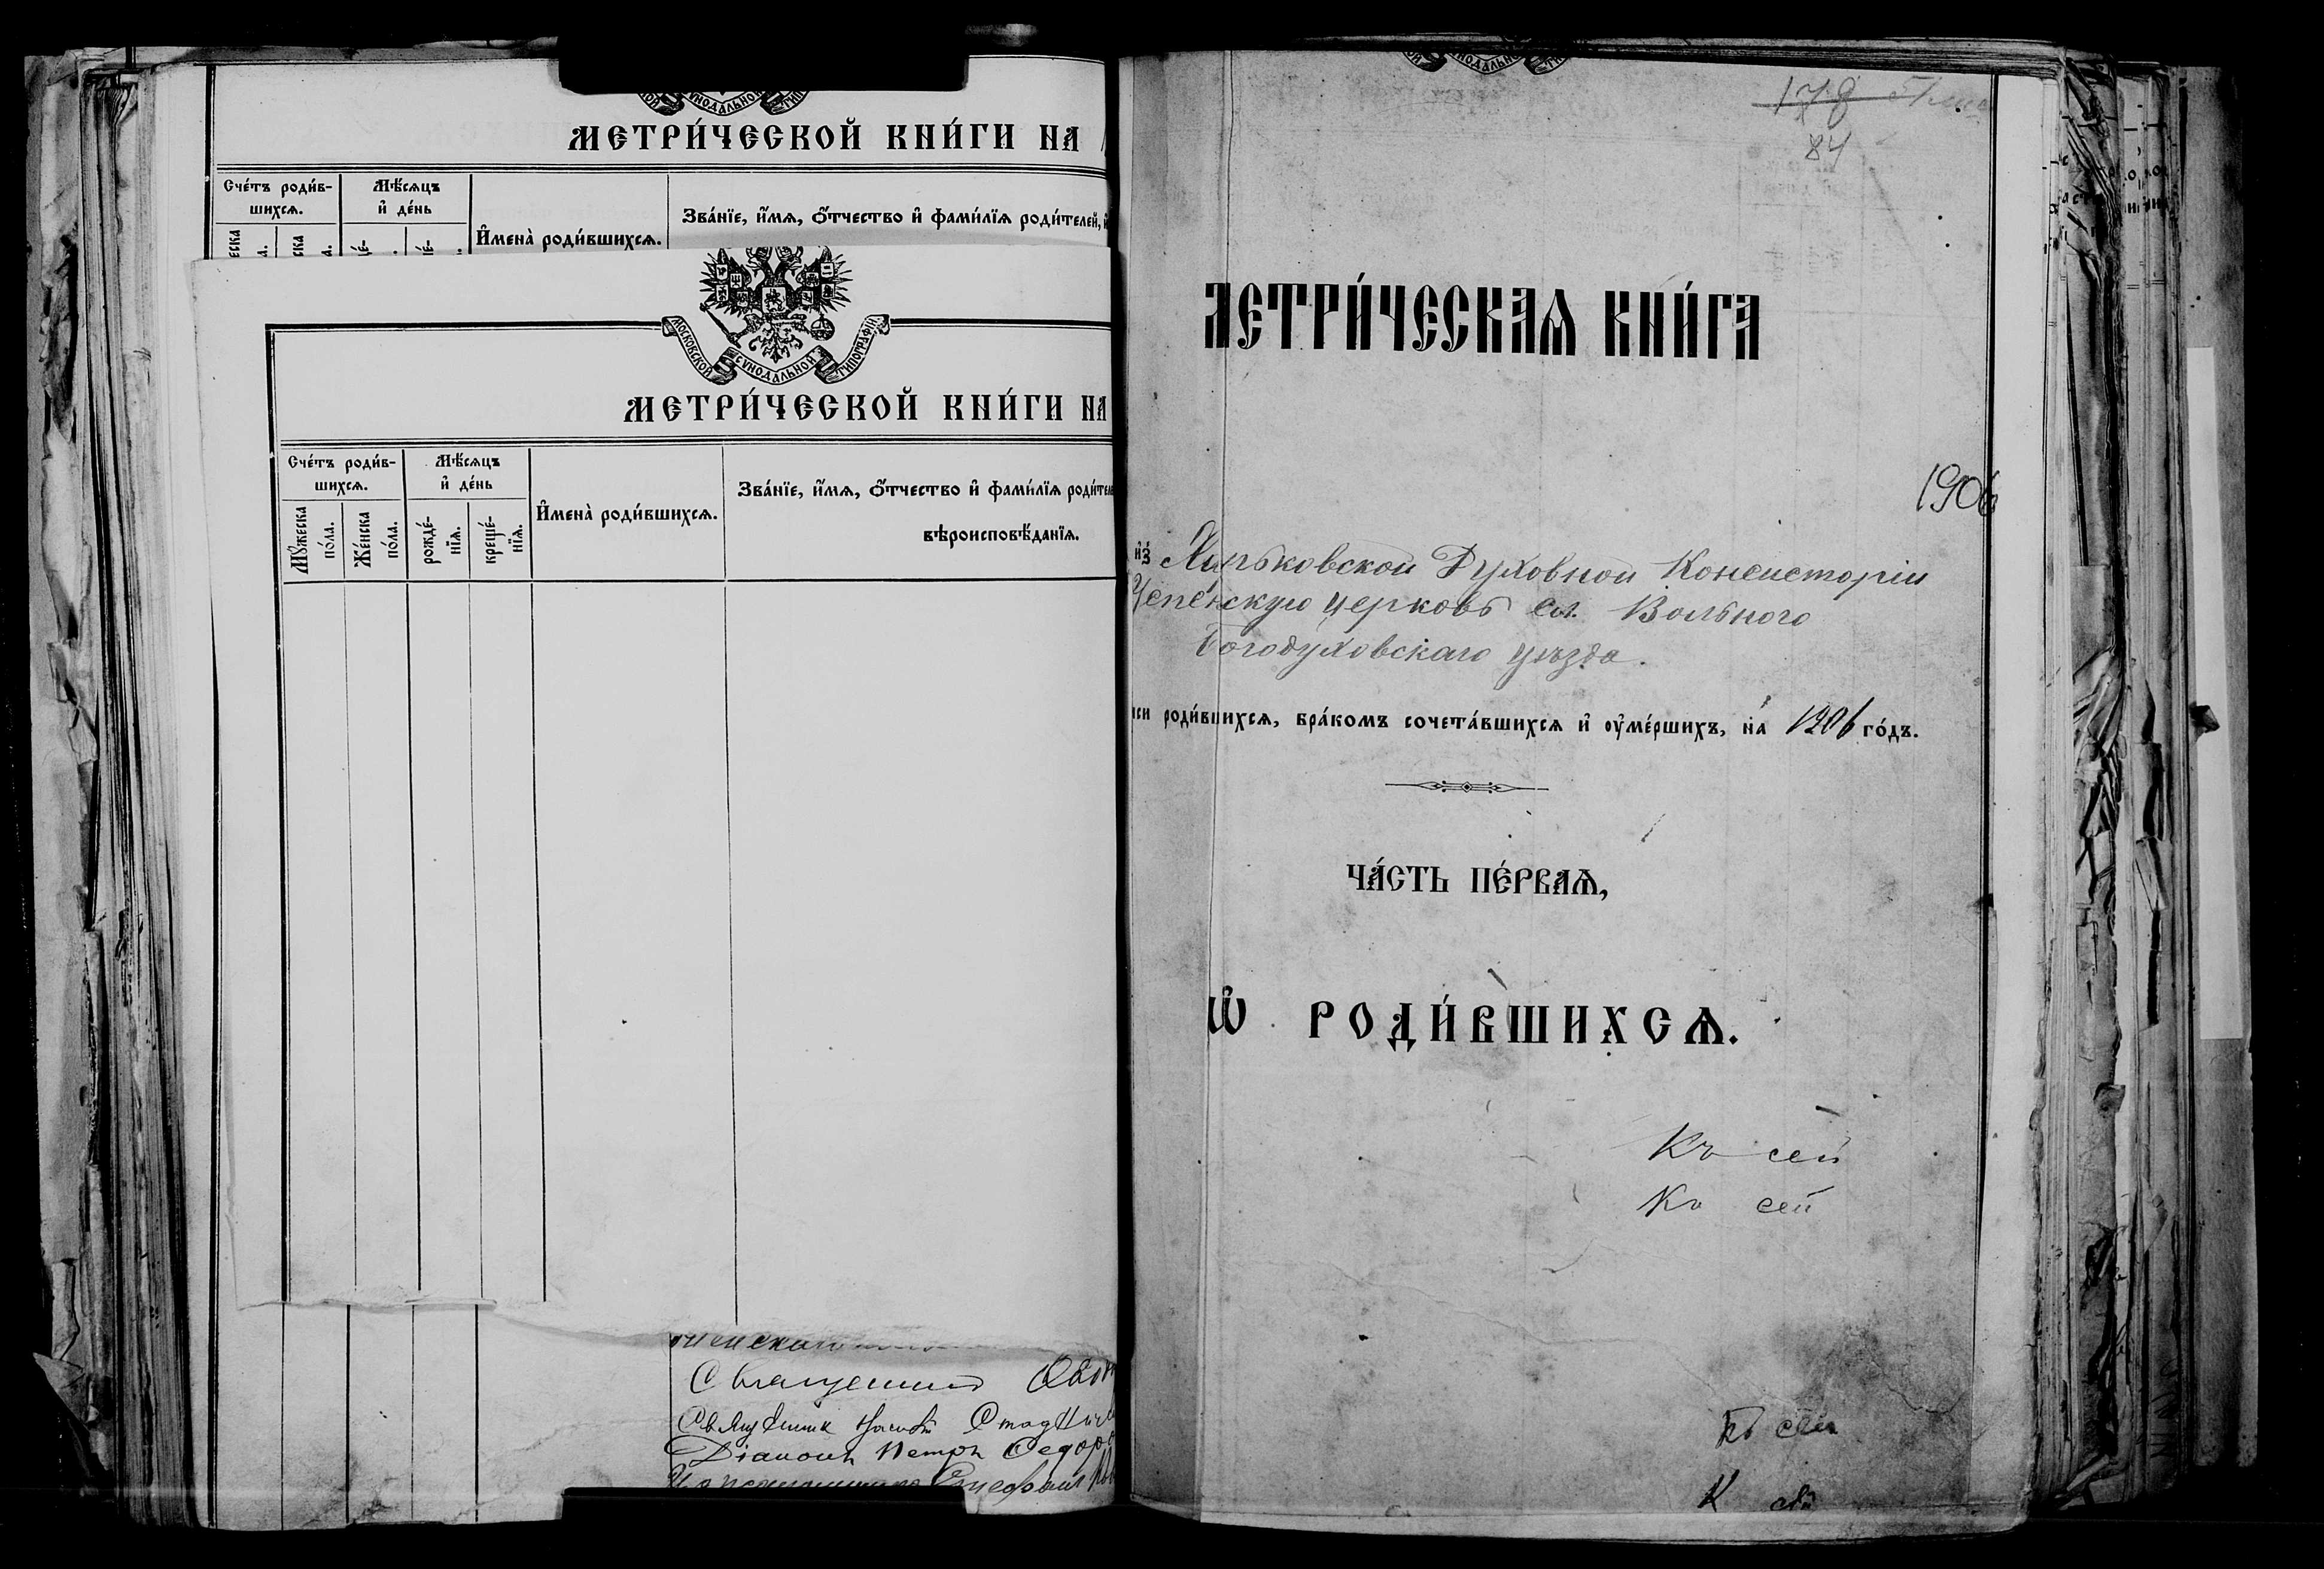 УНОДАЛЬНОЙ
МЕТРИ́ЧЕСКОЙ КНИ́ГИ НА
Сче́тъ роди́в-
шихсѧ.
Мѣ́сѧцъ
и҆ де́нь
И҆мена̀ роди́вшихсѧ.
Зва́нїе, и҆́мѧ, ѻ҆́тчество и҆ фами́лїѧ роди́телей,
МОСКОВСКОЙ СѴНОДАЛЬНОЙ ТИПОГРАФІИ.
МЕТРИ́ЧЕСКОЙ КНИ́ГИ НА
Сче́тъ роди́в-
шихсѧ.
Мѣ́сѧцъ
и҆ де́нь
И҆мена̀ роди́вшихсѧ.
Зва́нїе, и҆́мѧ, ѻ҆́тчество и҆ фами́лїѧ роди́теле
вѣроисповѣ́данїѧ.
Мꙋ́жеска
по́ла.
Же́нска
по́ла.
рожде́-
нїѧ.
креще́-
нїѧ.
Священникъ
Священник Стад
Діаконъ Петръ Федоро
178
84
МЕТРИ́ЧЕСКАѦ КНИ́ГА
1906
и҆з̾ Харьковской Духовной Консисторіи
Успенскую церковь сл. Вольного
Богодуховскаго уѣзда.
иси роди́вшихсѧ, бра́комъ сочета́вшихсѧ и҆ ᲂу҆ме́ршихъ, на 1906 го́дъ.
ЧА́СТЬ ПЕ́РВАѦ,
Ѡ҆ РОДИ́ВШИХСѦ.
Къ сей
Къ сей
Къ сей
К сей